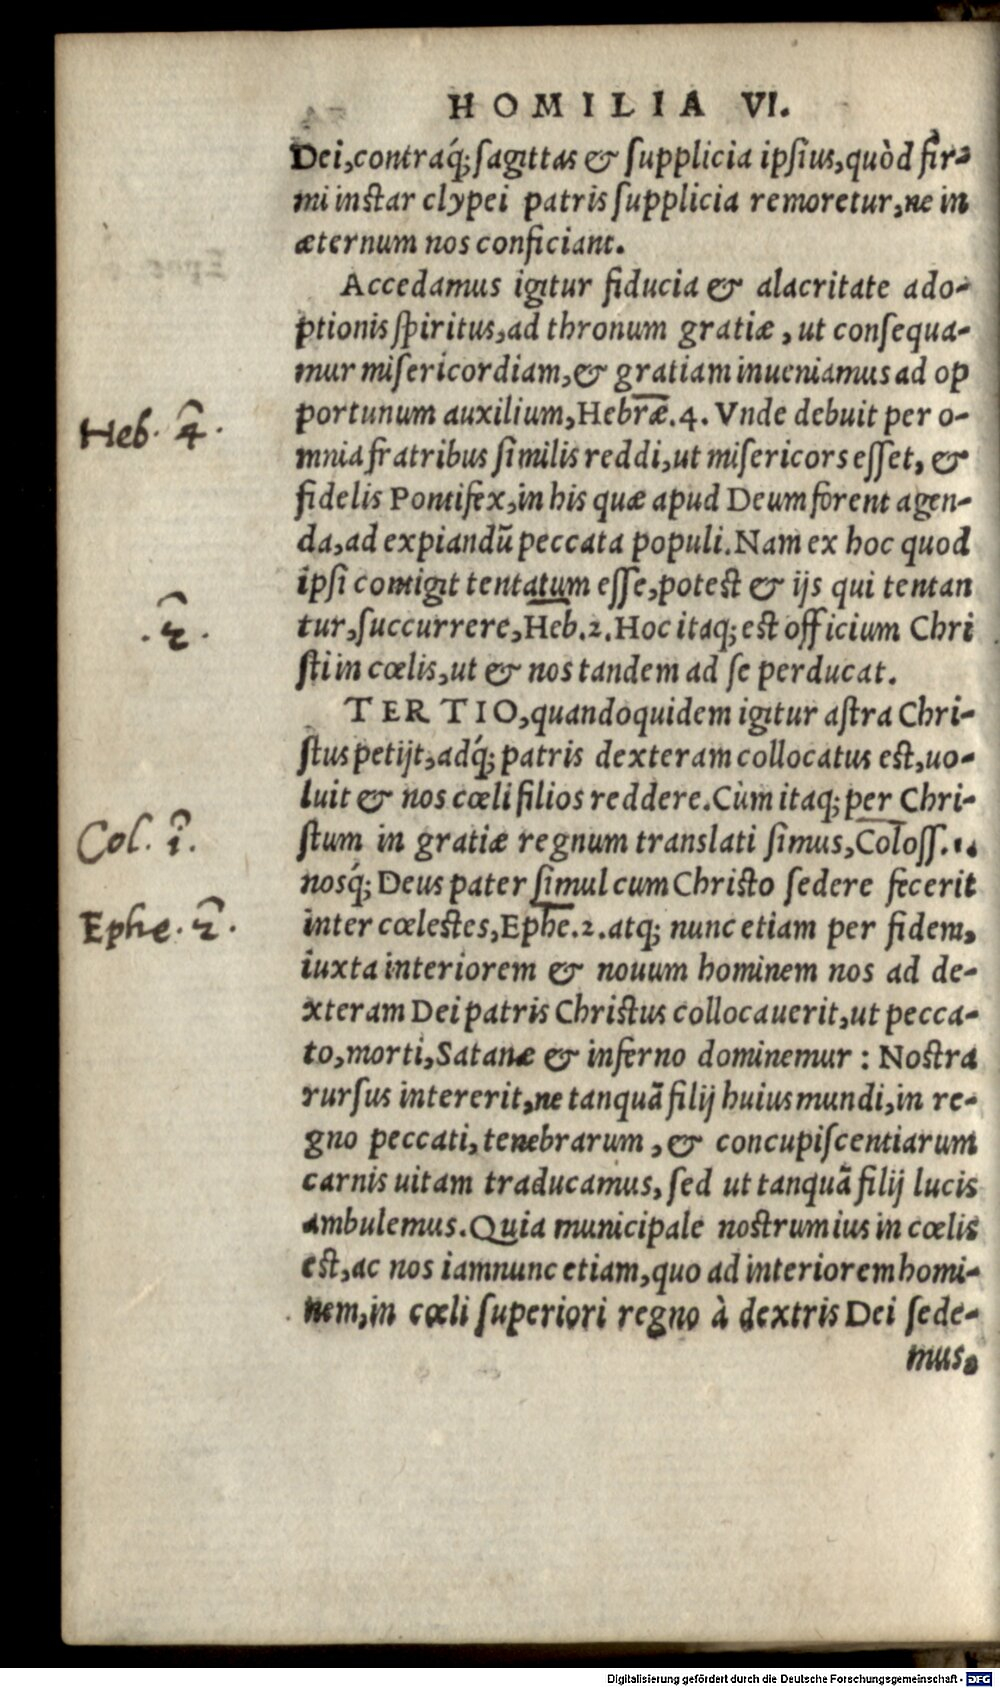 HOMILIA VI.
Dei, contraq́; sagittas & supplicia ipsius, quòd fir-
mi instar clypei patris supplicia remoretur, ne in
æternum nos conficiant.
Accedamus igitur fiducia & alacritate ado-
ptionis spiritus, ad thronum gratiæ, ut consequa-
mur misericordiam, & gratiam inueniamus ad op
portunum auxilium, Hebræ. 4. Vnde debuit per o-
Heb. 4.
mnia fratribus similis reddi, ut misericors esset, &
fidelis Pontifex, in his quæ apud Deum forent agen-
da, ad expiandũ peccata populi. Nam ex hoc quod
ipsi contigit tentatum esse, potest & ijs qui tentan
tur, succurrere, Heb. 2. Hoc itaq; est officium Chri
.2.
sti in cœlis, ut & nos tandem ad se perducat.
TERTIO, quandoquidem igitur astra Chri-
stus petijt, adq́; patris dexteram collocatus est, uo-
luit & nos cœli filios reddere. Cùm itaq; per Chri-
stum in gratiæ regnum translati simus, Coloss. 1.
Col. 1.
nosq́; Deus pater simul cum Christo sedere fecerit
inter cœlestes, Ephe. 2. atq; nunc etiam per fidem,
Ephe. 2.
iuxta interiorem & nouum hominem nos ad de-
xteram Dei patris Christus collocauerit, ut pecca-
to, morti, Satanæ & inferno dominemur : Nostra
rursus intererit, ne tanquã filij huius mundi, in re-
gno peccati, tenebrarum, & concupiscentiarum
carnis uitam traducamus, sed ut tanquã filij lucis
ambulemus. Quia municipale nostrum ius in cœlis
est, ac nos iamnunc etiam, quo ad interiorem homi-
nem, in cœli superiori regno à dextris Dei sede-
mus,
Digitalisierung gefördert durch die Deutsche Forschungsgemeinschaft - DFG